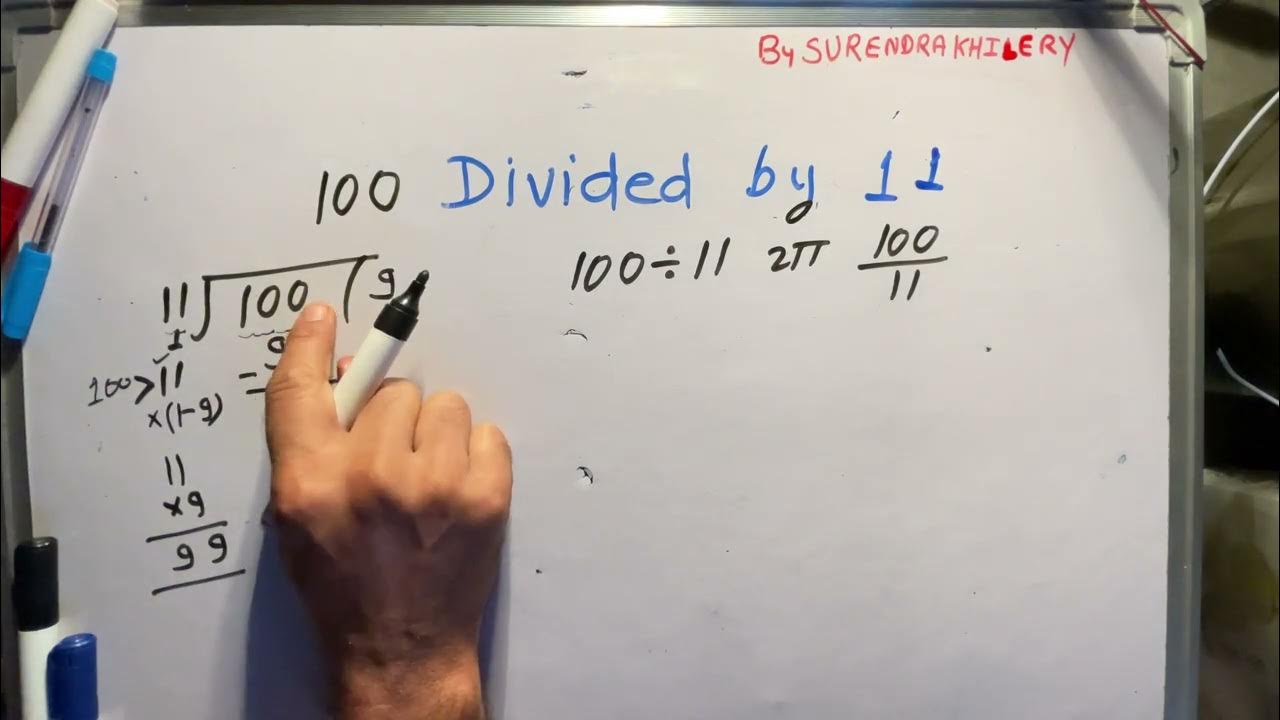 By SURENDRA KHILERY
100 Divided by 11
100÷11 या 100/11
11 100 9
1 9
100>11 -
×(1-9)
11
×9
99